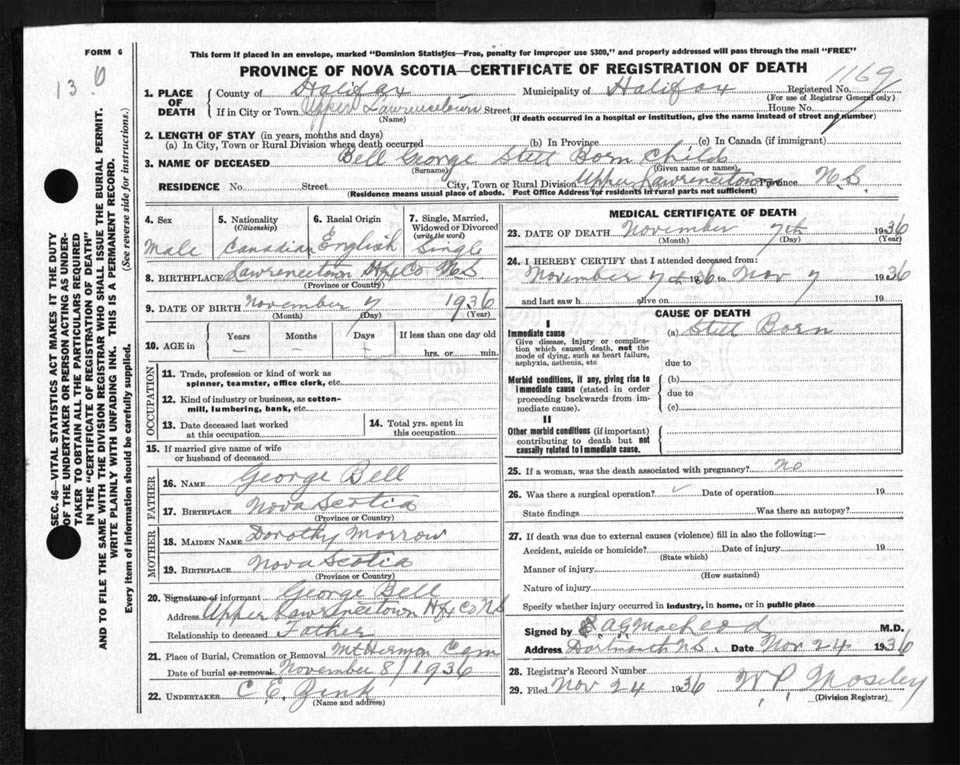 FORM 6
13 6
This form if placed in an envelope, marked "Dominion Statistics—Free, penalty for improper use $300," and properly addressed will pass through the mail "FREE"
PROVINCE OF NOVA SCOTIA—CERTIFICATE OF REGISTRATION OF DEATH
1169
1. PLACE OF DEATH
County of Halifax Municipality of Halifax Registered No.
(For use of Registrar General only)
If in City or Town Upper Lawrencetown Street House No.
(Name) (If death occurred in a hospital or institution, give the name instead of street and number)
2. LENGTH OF STAY (in years, months and days)
(a) In City, Town or Rural Division where death occurred (b) In Province (c) In Canada (if immigrant)
3. NAME OF DECEASED Bell George Still Born Child
(Surname) (Given name or names)
RESIDENCE No. Street City, Town or Rural Division Upper Lawrencetown Province N S
(Residence means usual place of abode. Post Office Address for Residents in rural parts not sufficient)
4. Sex 5. Nationality (Citizenship) 6. Racial Origin 7. Single, Married, Widowed or Divorced (write the word)
Male Canadian English Single
8. BIRTHPLACE Lawrencetown Hfx Co N S
(Province or Country)
9. DATE OF BIRTH November 7 1936
(Month) (Day) (Year)
10. AGE in Years Months Days If less than one day
— — hrs. or min.
OCCUPATION
11. Trade, profession or kind of work as spinner, teamster, office clerk, etc.
12. Kind of industry or business, as cotton-mill, lumbering, bank, etc.
13. Date deceased last worked at this occupation
14. Total yrs. spent in this occupation
15. If married give name of wife or husband of deceased
FATHER
16. NAME George Bell
17. BIRTHPLACE Nova Scotia
(Province or Country)
MOTHER
18. MAIDEN NAME Dorothy Morrow
19. BIRTHPLACE Nova Scotia
(Province or Country)
20. Signature of informant George Bell
Address Upper Lawrencetown Hfx Co N S
Relationship to deceased Father
21. Place of Burial, Cremation or Removal Mt Hermon Cem
Date of burial or removal November 8/1936
22. UNDERTAKER C E Zink
(Name and address)
MEDICAL CERTIFICATE OF DEATH
23. DATE OF DEATH November 7th 1936
(Month) (Day) (Year)
24. I HEREBY CERTIFY that I attended deceased from:
November 7th 1936 to Nov 7 1936
and last saw h alive on 19
CAUSE OF DEATH
I
Immediate cause
Give disease, injury or complication which caused death, not the mode of dying, such as heart failure, asphyxia, asthenia, etc
(a) Still Born
due to
Morbid conditions, if any, giving rise to immediate cause (stated in order proceeding backwards from immediate cause).
(b)
due to
(c)
II
Other morbid conditions (if important) contributing to death but not causally related to immediate cause.
25. If a woman, was the death associated with pregnancy? no
26. Was there a surgical operation? Date of operation 19
State findings Was there an autopsy?
27. If death was due to external causes (violence) fill in also the following:—
Accident, suicide or homicide? Date of injury 19
(State which)
Manner of injury
(How sustained)
Nature of injury
Specify whether injury occurred in industry, in home, or in public place
Signed by A G MacLeod M.D.
Address Dartmouth N S. Date Nov 24 1936
28. Registrar's Record Number
29. Filed Nov 24 1936 W P Moseley
(Division Registrar)
SEC. 46—VITAL STATISTICS ACT MAKES IT THE DUTY
OF THE UNDERTAKER OR PERSON ACTING AS UNDER-
TAKER TO OBTAIN ALL THE PARTICULARS REQUIRED
IN THE "CERTIFICATE OF REGISTRATION OF DEATH"
AND TO FILE THE SAME WITH THE DIVISION REGISTRAR WHO SHALL ISSUE THE BURIAL PERMIT.
WRITE PLAINLY WITH UNFADING INK. THIS IS A PERMANENT RECORD.
Every item of information should be carefully supplied. (See reverse side for instructions.)